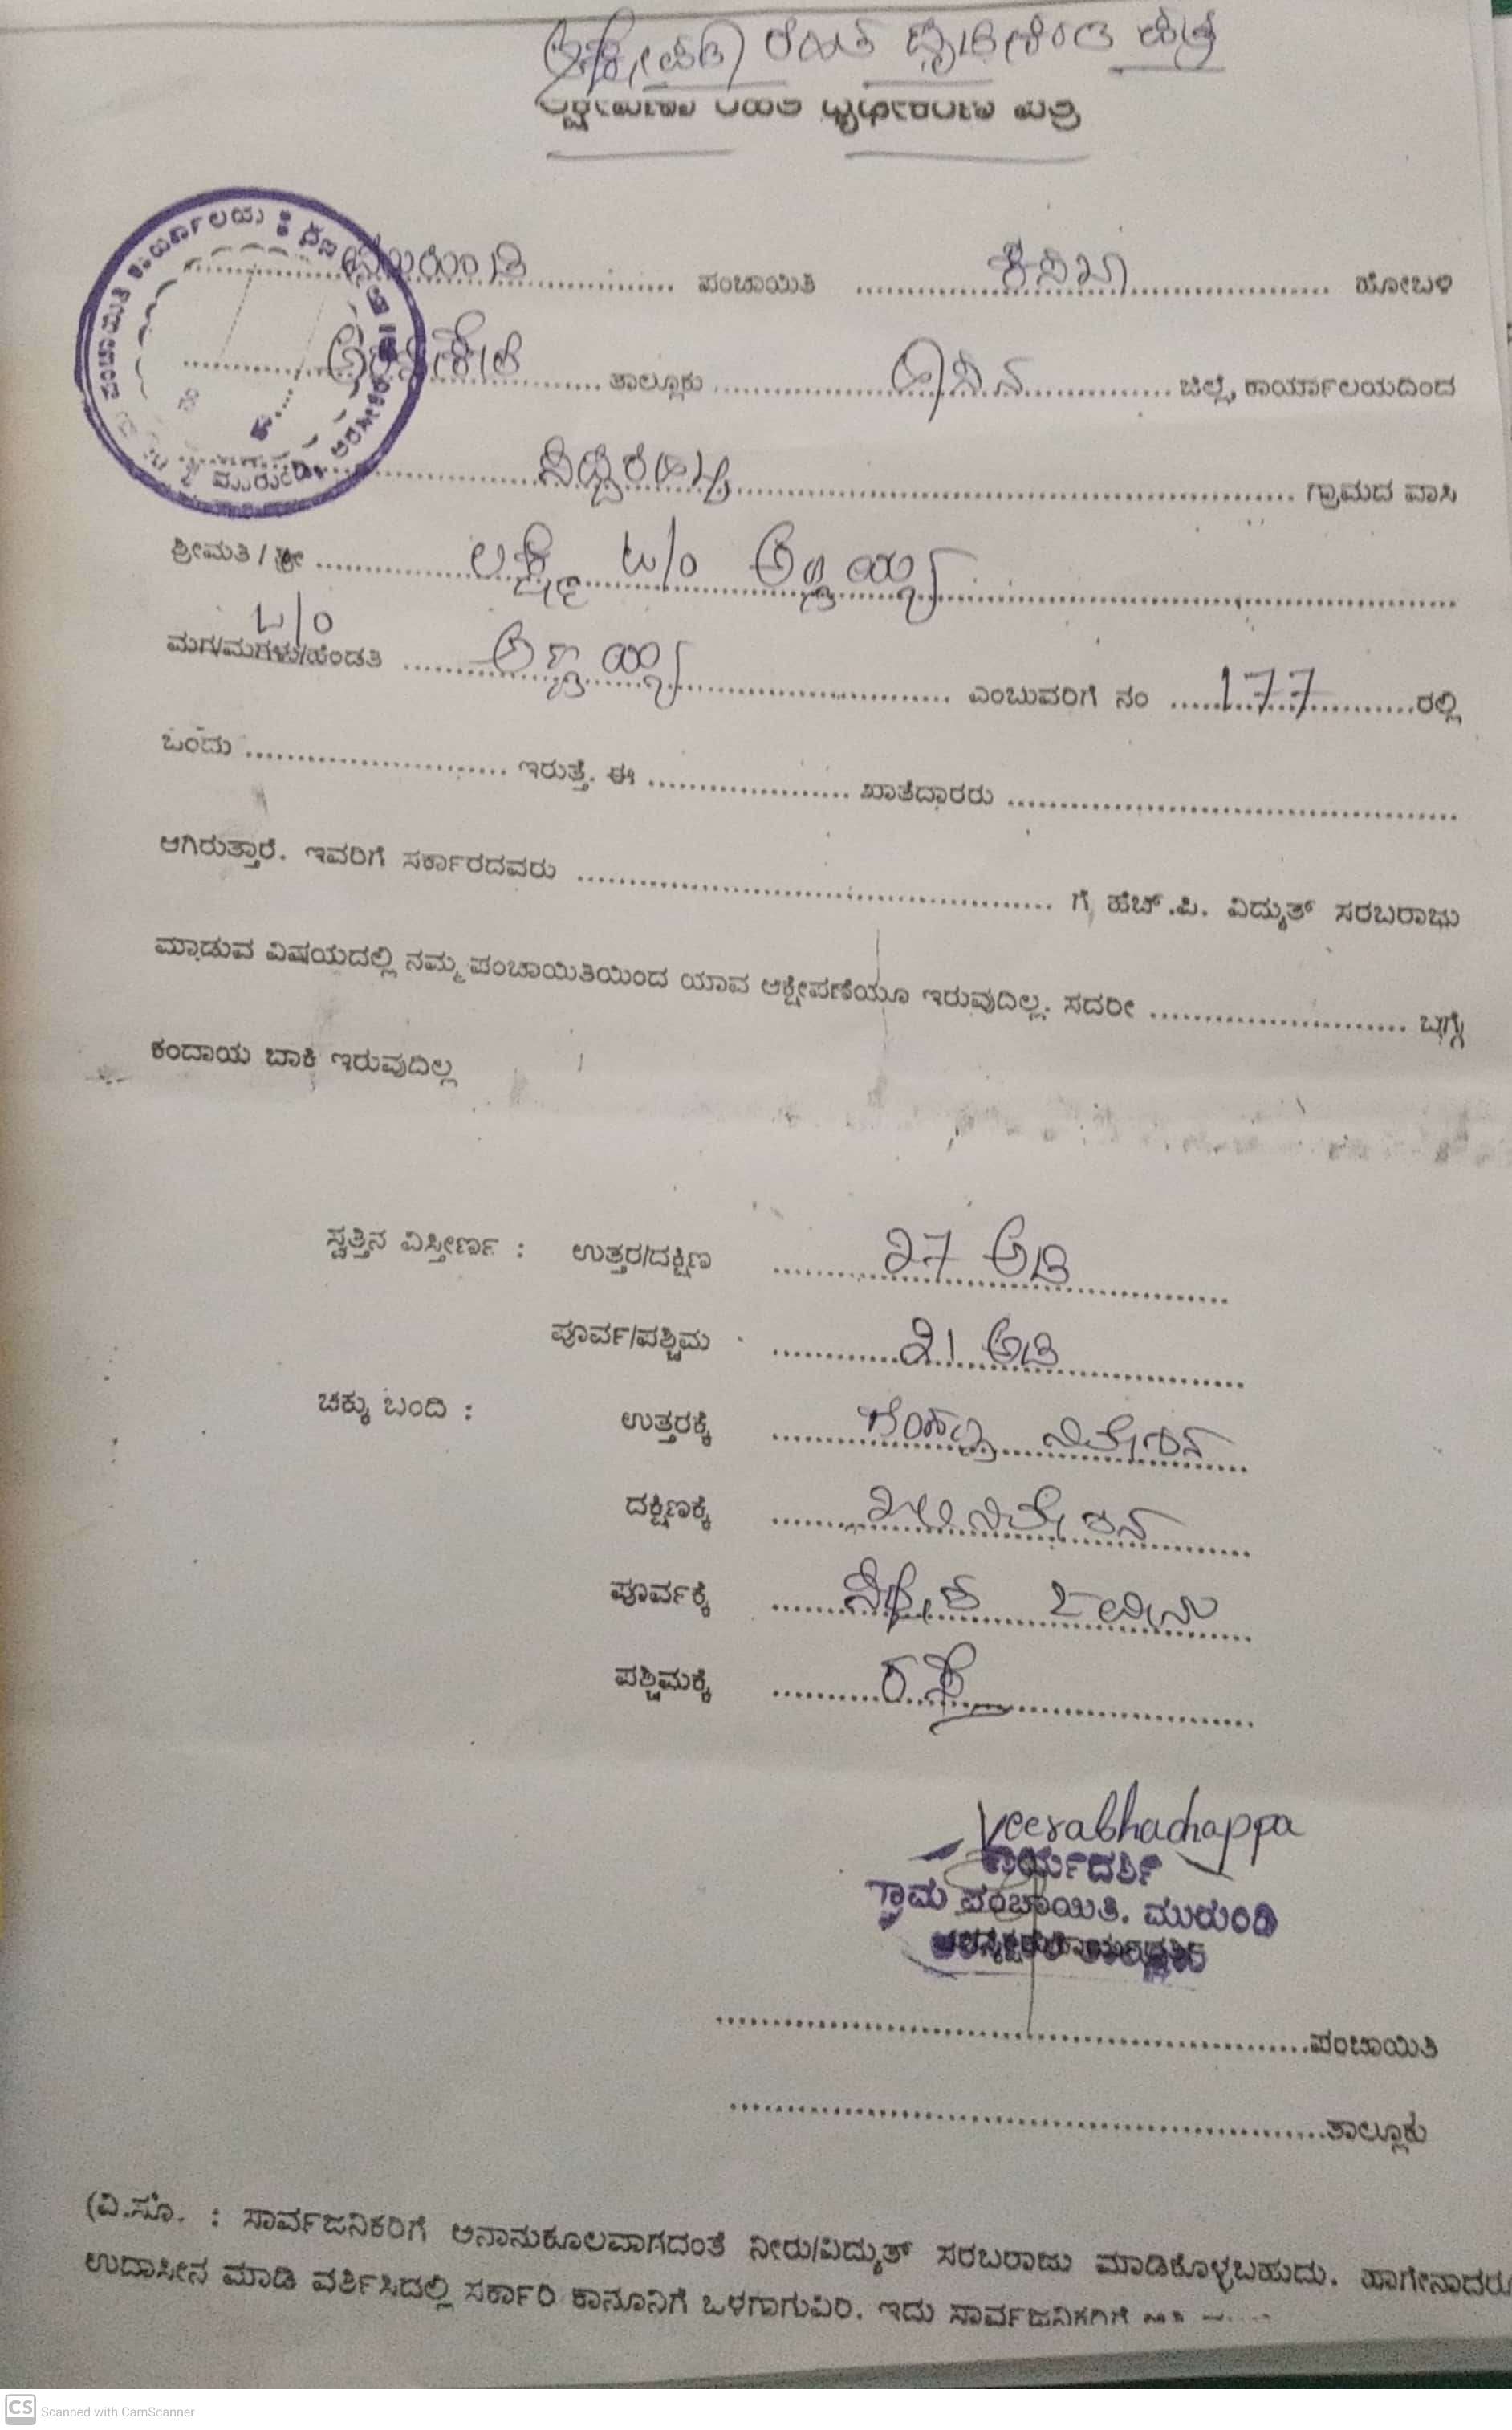 ಆಕ್ಷೇಪಣಾ ರಹಿತ ಧೃಢೀಕರಣ ಪತ್ರ
ಆಕ್ಷೇಪಣಾ ರಹಿತ ಧೃಢೀಕರಣ ಪತ್ರ
ಮುರುಂಡಿ ಪಂಚಾಯಿತಿ ಕಸಬಾ ಹೋಬಳಿ
ಅರಸೀಕೆರೆ ತಾಲ್ಲೂಕು ಹಾಸನ ಜಿಲ್ಲೆ, ಕಾರ್ಯಾಲಯದಿಂದ
ಗ್ರಾಮದ ವಾಸಿ
ಶ್ರೀಮತಿ / ಶ್ರೀ ಲಕ್ಷ್ಮಿ W/o ಅಣ್ಣಯ್ಯ
W/o
ಮಗ/ಮಗಳು/ಹೆಂಡತಿ ಅಣ್ಣಯ್ಯ ಎಂಬುವರಿಗೆ ನಂ 177 ರಲ್ಲಿ
ಒಂದು ಇರುತ್ತೆ. ಈ ಖಾತೆದಾರರು
ಆಗಿರುತ್ತಾರೆ. ಇವರಿಗೆ ಸರ್ಕಾರದವರು ಗೆ ಹೆಚ್.ಪಿ. ವಿದ್ಯುತ್ ಸರಬರಾಜು
ಮಾಡುವ ವಿಷಯದಲ್ಲಿ ನಮ್ಮ ಪಂಚಾಯಿತಿಯಿಂದ ಯಾವ ಆಕ್ಷೇಪಣೆಯೂ ಇರುವುದಿಲ್ಲ. ಸದರೀ ಬಗ್ಗೆ
ಕಂದಾಯ ಬಾಕಿ ಇರುವುದಿಲ್ಲ
ಸ್ವತ್ತಿನ ವಿಸ್ತೀರ್ಣ : ಉತ್ತರ/ದಕ್ಷಿಣ 27 ಅಡಿ
ಪೂರ್ವ/ಪಶ್ಚಿಮ 21 ಅಡಿ
ಚಕ್ಕು ಬಂದಿ : ಉತ್ತರಕ್ಕೆ ನಿವೇಶನ
ದಕ್ಷಿಣಕ್ಕೆ ಖಾಲಿ ನಿವೇಶನ
ಪೂರ್ವಕ್ಕೆ ಜಮೀನು
ಪಶ್ಚಿಮಕ್ಕೆ ರಸ್ತೆ
Veerabhadrappa
ಕಾರ್ಯದರ್ಶಿ
ಗ್ರಾಮ ಪಂಚಾಯಿತಿ. ಮುರುಂಡಿ
ಪಂಚಾಯಿತಿ
ತಾಲ್ಲೂಕು
(ವಿ.ಸೂ. : ಸಾರ್ವಜನಿಕರಿಗೆ ಅನಾನುಕೂಲವಾಗದಂತೆ ನೀರು/ವಿದ್ಯುತ್ ಸರಬರಾಜು ಮಾಡಿಕೊಳ್ಳಬಹುದು. ಹಾಗೇನಾದರೂ
ಉದಾಸೀನ ಮಾಡಿ ವರ್ತಿಸಿದಲ್ಲಿ ಸರ್ಕಾರಿ ಕಾನೂನಿಗೆ ಒಳಗಾಗುವಿರಿ. ಇದು ಸಾರ್ವಜನಿಕರಿಗೆ
CS Scanned with CamScanner